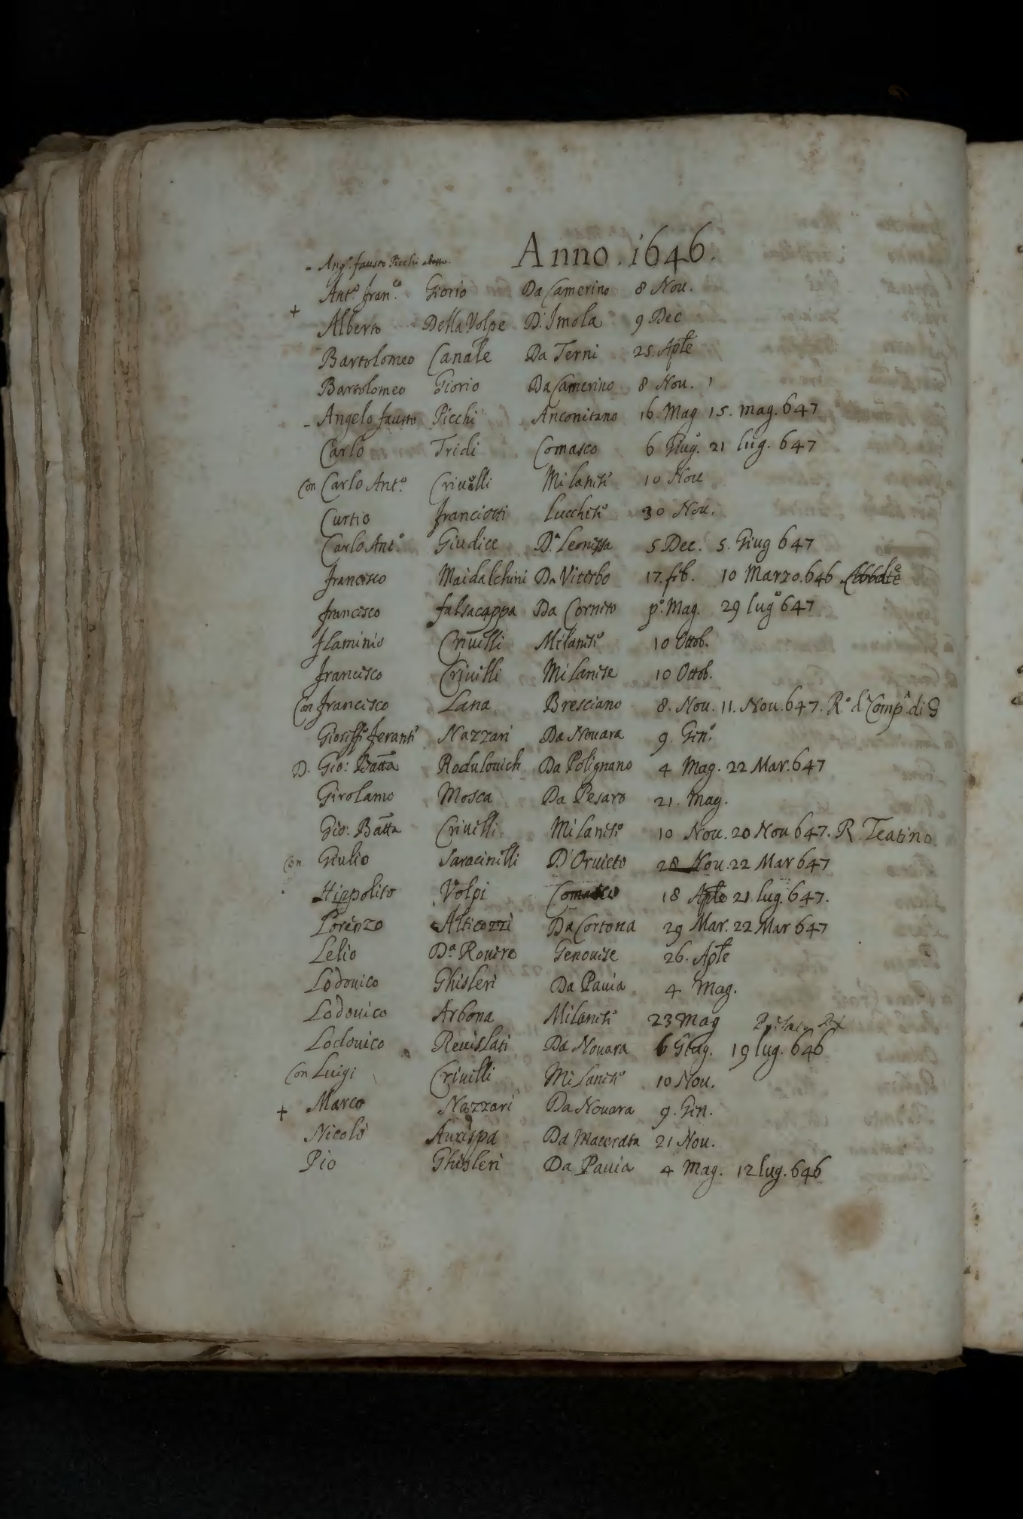 Anno. 1646.
- Ang.º fausto Picchi
Ant.º fran.co Giorio Da Camerino 8 Nou.
+ Alberto Della Volpe D'Imola 9 Dec
Bartolomeo Canale Da Terni 25 Aple
Bartolomeo Giorio Da Camerino 8 Nou.
- Angelo fausto Picchi Anconitano 16 Mag 15. mag. 647
Carlo Tridi Comasco 6 Giug. 21 lug. 647
Con Carlo Ant.º Criuelli Milanese 10 Nou
Curtio franciotti Lucchese 30 Nou.
Carlo Ant.º Giudice D.a Leonissa 5 Dec. 5. Giug 647
francesco Maidalchini Da Viterbo 17. feb. 10 Marzo. 646
francesco falsacappa Da Corneto p.º Mag. 29 lug.º 647
flaminio Criuelli Milanese 10 Ottob.
francesco Criuelli Milanese 10 Ottob.
Con francesco Lana Bresciano 8. Nou. 11. Nou. 647. R.º d. Comp.a di G
Gioseffo Nazzari Da Nouara 9. Gen.º
D. Gio: Batta Rodulouich Da Polignano 4 Mag. 22 Mar. 647
Girolamo Mosca Da Pesaro 21. Mag.
Gio: Batta Criuelli Milanese 10 Nou. 20 Nou 647. R. Teatino
Con Giulio Saracinelli D'Oruieto 28 Nou. 22 Mar 647
Hippolito Volpi Comasco 18 Aple 21 lug. 647.
Lorenzo Alticozzi Da Cortona 29 Mar. 22 Mar 647
Lelio D.a Rouere Genouese 26. Aple
Lodouico Ghisleri Da Pauia 4 Mag.
Lodouico Arbona Milanese 23 Mag
Lodouico Reuislati Da Nouara 6 Giug. 19 lug. 646
Con Luigi Criuelli Milanese 10 Nou.
+ Marco Nazzari Da Nouara 9. Gen.
Nicolò Aurispa Da Macerata 21 Nou.
Pio Ghisleri Da Pauia 4 Mag. 12 lug. 646